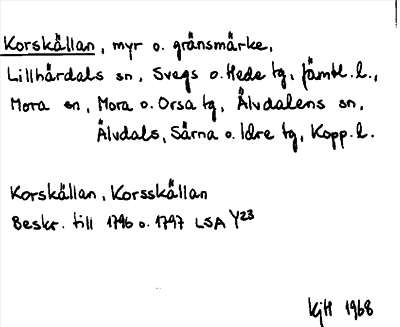 Korskällan, myr o. gränsmärke,
Lillhärdals sn, Svegs o. Hede tg, Jämtl. l.,
Mora sn, Mora o. Orsa tg, Älvdalens sn,
Älvdals, Särna o. Idre tg, Kopp. l.
Korskällan, Korsskällan
Beskr. till 1796 o. 1797 LSA Y23
KjH 1968